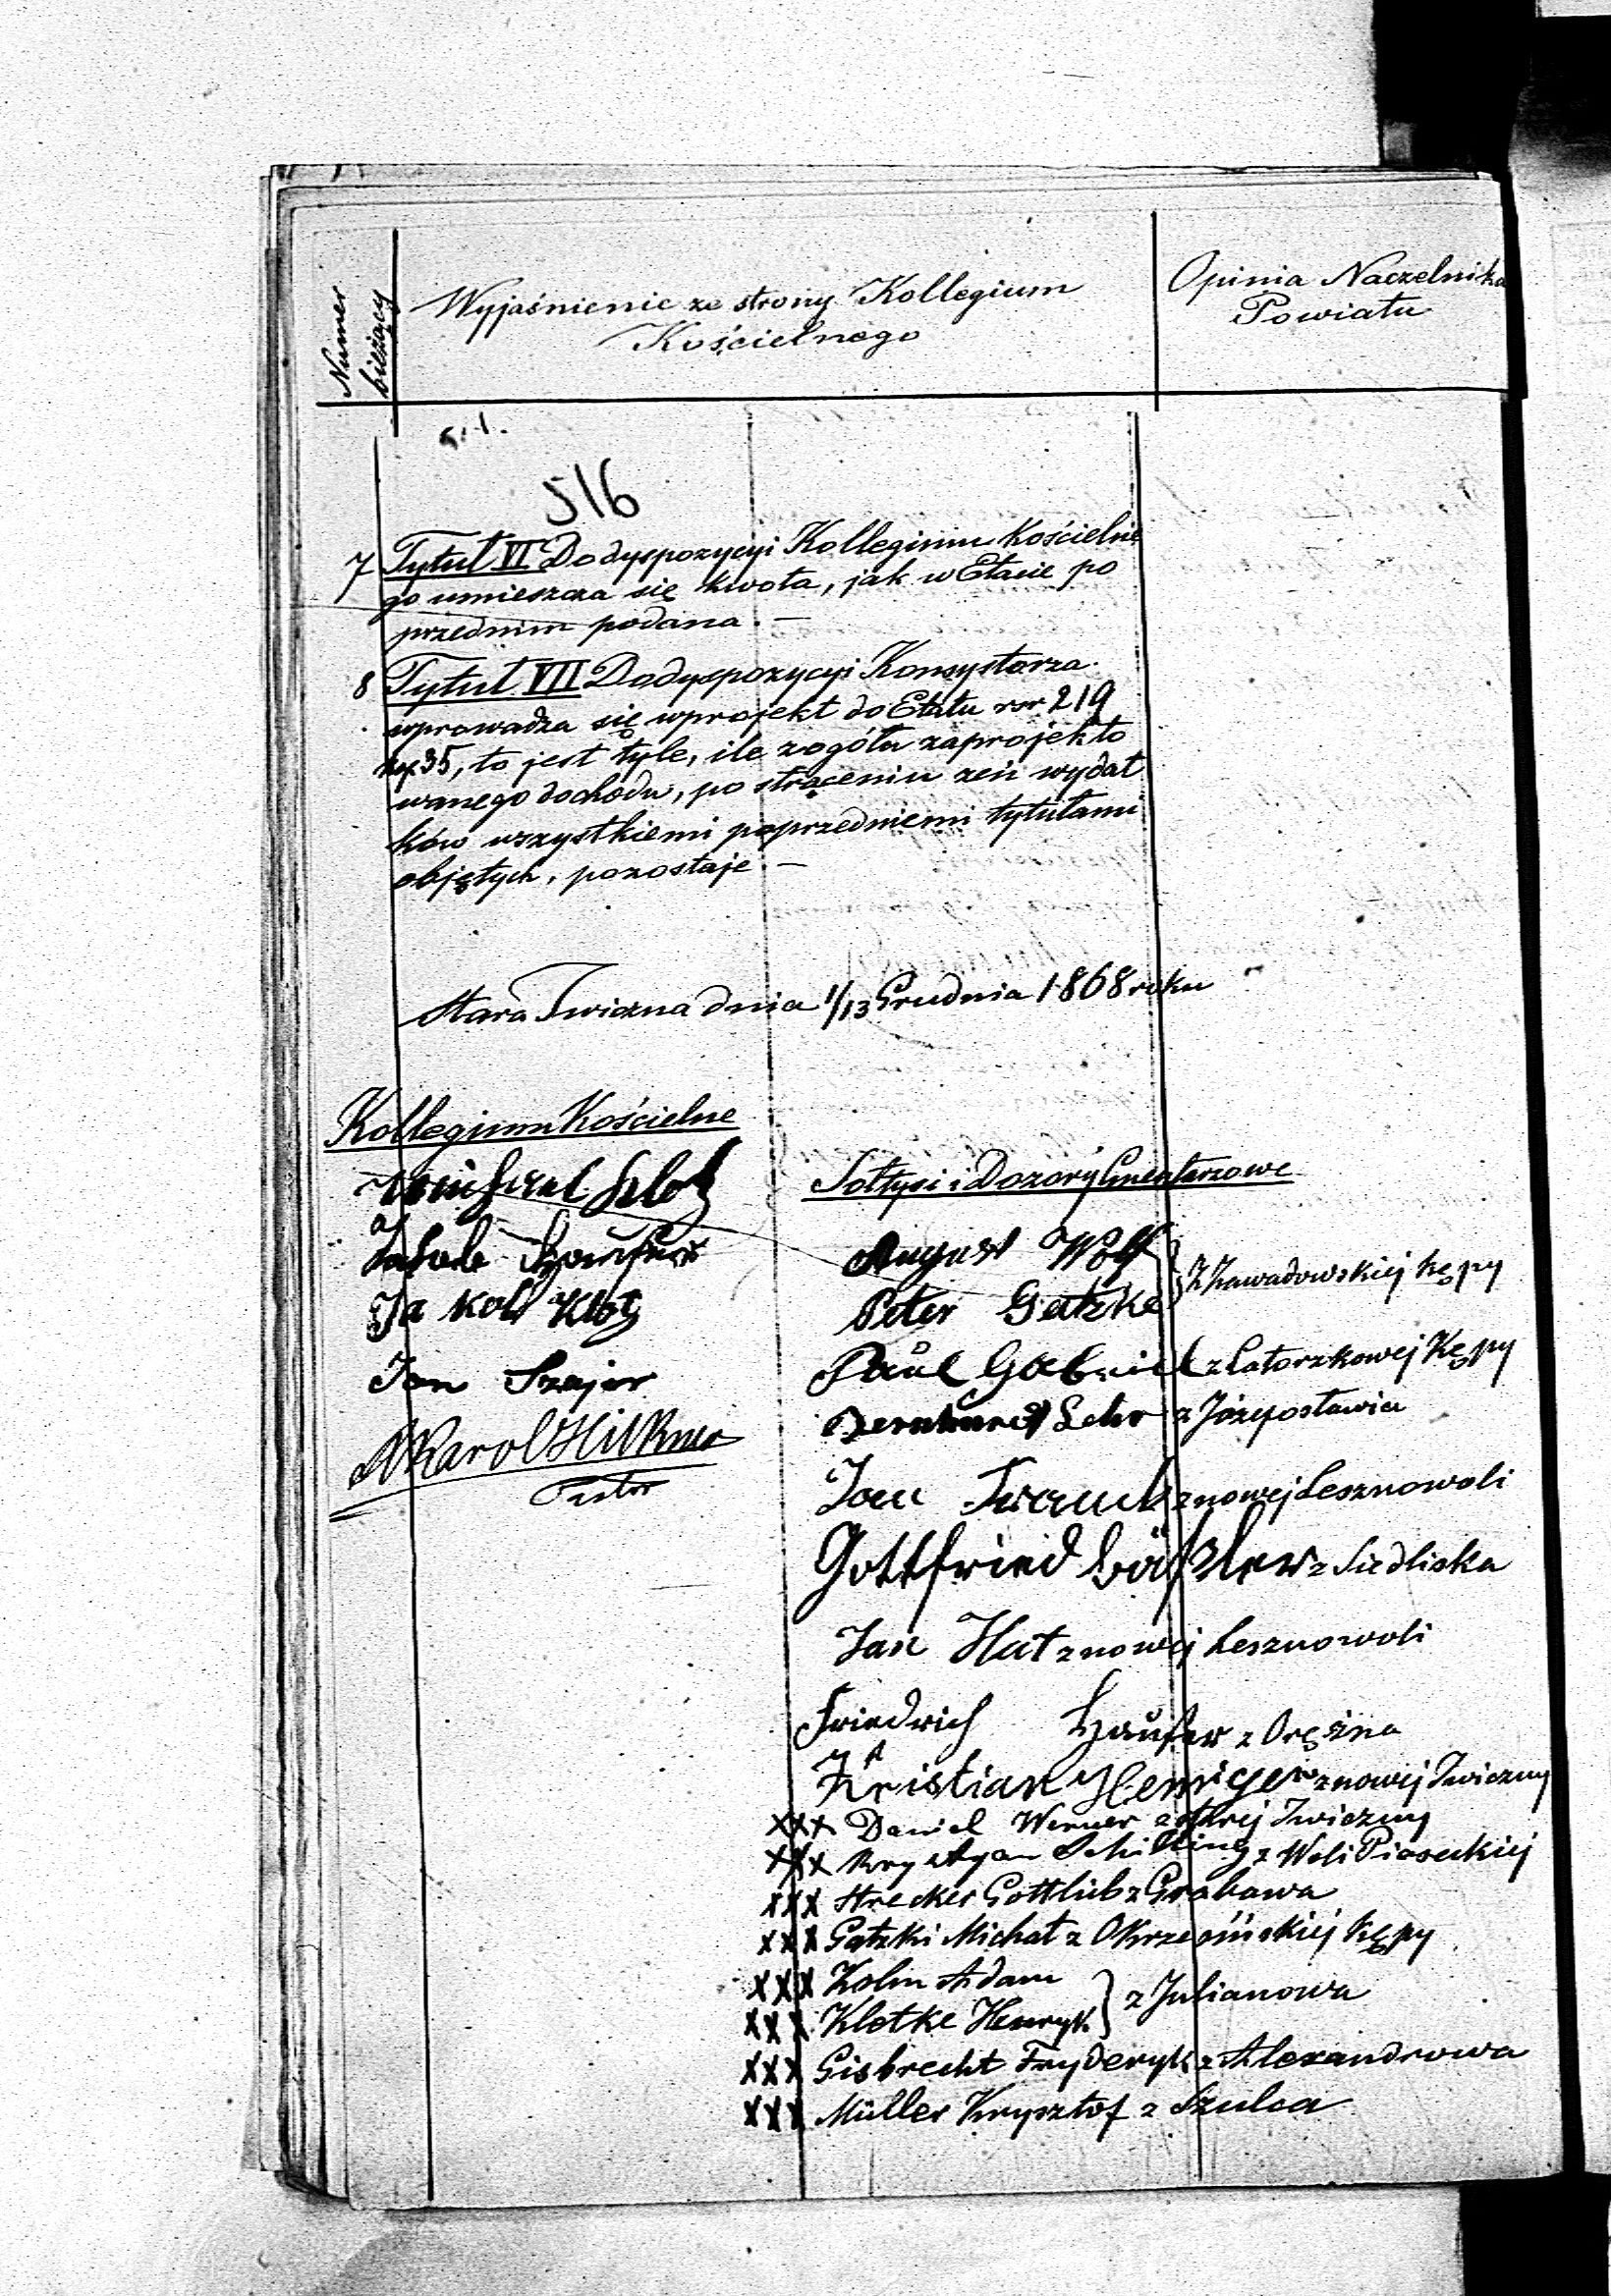 Numer
bieżący
Wyjaśnienie ze strony Kollegium
Kościelnego
Opinia Naczelnika
Powiatu
516
7 Tytuł VI Do dyspozycyi Kollegium Kościelne
go umieszcza się kwota, jak w Etacie po
przednim podana. —
8 Tytuł VII Do dyspozycyi Konsystorza
wprowadza się w projekt do Etatu rsr 219
kop 35, to jest tyle, ile z ogółu zaprojekto
wanego dochodu, po strąceniu zeń wydat
ków wszystkiemi poprzedniemi tytułami
objętych, pozostaje. —
Stara Iwiczna dnia 1/13 Grudnia 1868 roku
Kollegium Kościelne
Jakob Klotz
Jan Szajer
Pastor
Sołtysi i Dozory Cmentarzowe
August Wolf
Peter Getzke
} z Zawadowskiej Kępy
Paul Gabriel z Latorzkowej Kępy
Bernhard Lehr z Józefosławia
Jan z nowej Lesznowoli
Gottfried z Siedliska
Jan Hat z nowej Lesznowoli
Friedrich z Orężna
Kristian z nowej Iwiczny
xxx Daniel Werner z starej Iwiczny
xxx Krystyan Schilling z Woli Piaseckiej
xxx Strecker Gottlieb z Grabowa
xxx Gatzki Michał z Okrzeońskiej Kępy
xxx Kolm Adam
xxx Kletke Henryk
} z Julianowa
xxx Gisbrecht Fryderyk z Alexandrowa
xxx Müller Krysztof z Szulca